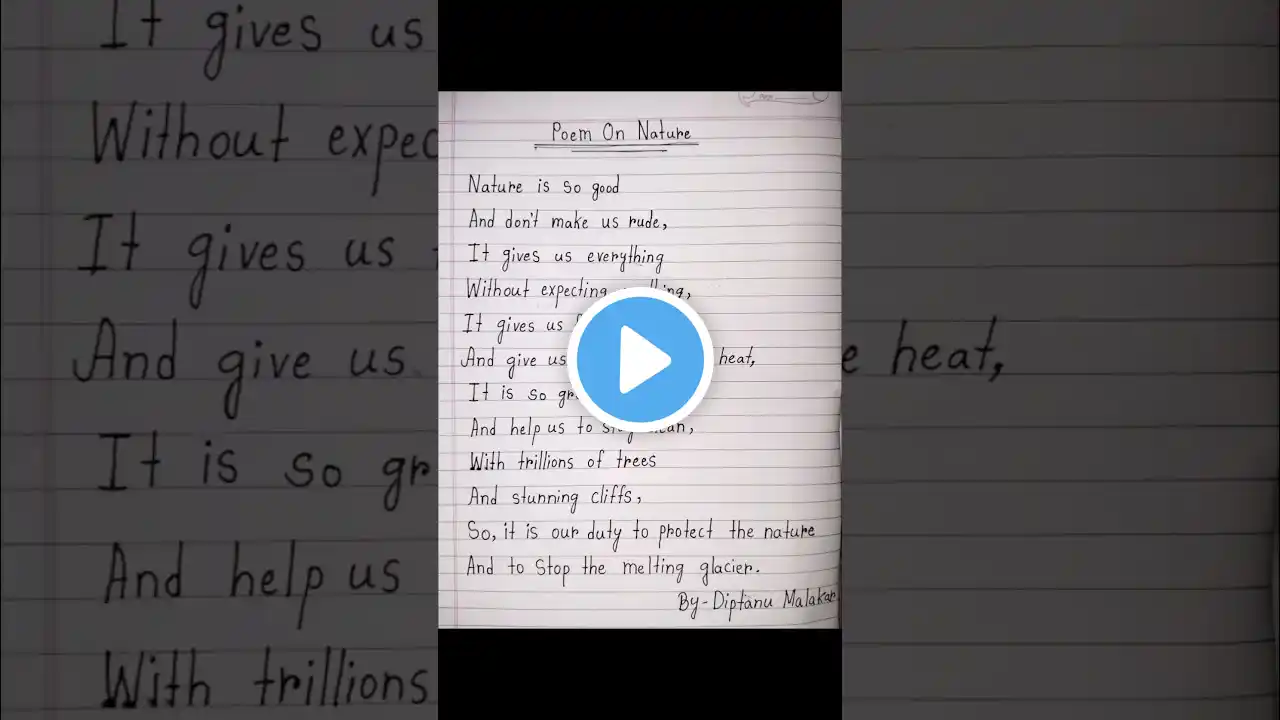 It gives us
Without expec
It gives us
And give us
e heat,
It is so gr
And help us
With trillions
Poem On Nature
Nature is so good
And don't make us rude,
It gives us everything
Without expecting
It gives us
And give us heat,
It is so
And help us to
With trillions of trees
And stunning cliffs,
So, it is our duty to protect the nature
And to stop the melting glacier.
By-Diptanu Malakar